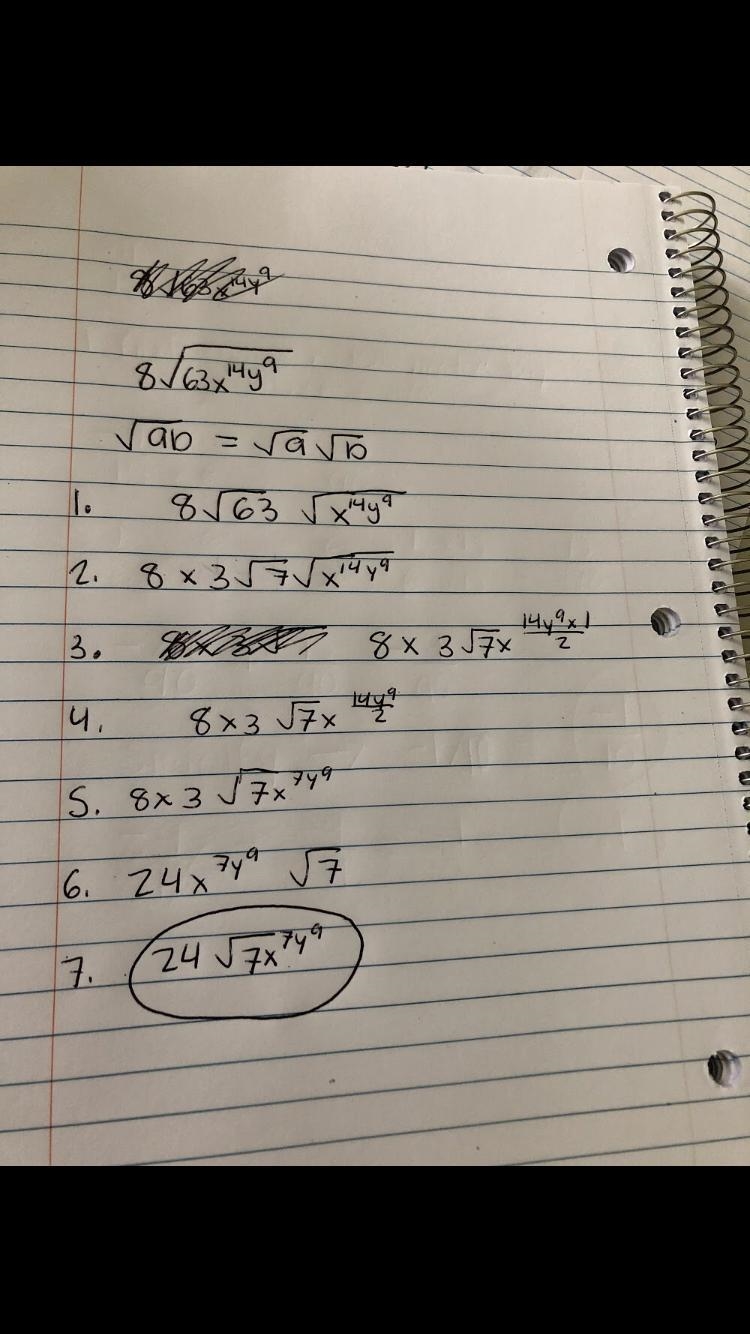 8√63x¹⁴y⁹
8√(63x¹⁴y⁹)
√ab = √a √b
1. 8√63 √(x¹⁴y⁹)
2. 8 × 3√7 √(x¹⁴y⁹)
3. 8 × 3√7x^(14y⁹×1/2)
4. 8×3 √7x^(14y⁹/2)
5. 8×3 √7x^(7y⁹)
6. 24x^(7y⁹) √7
7. 24 √7x^(7y⁹)